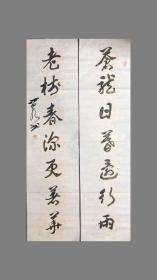 蒼龍日暮還行雨
老樹春深更著華